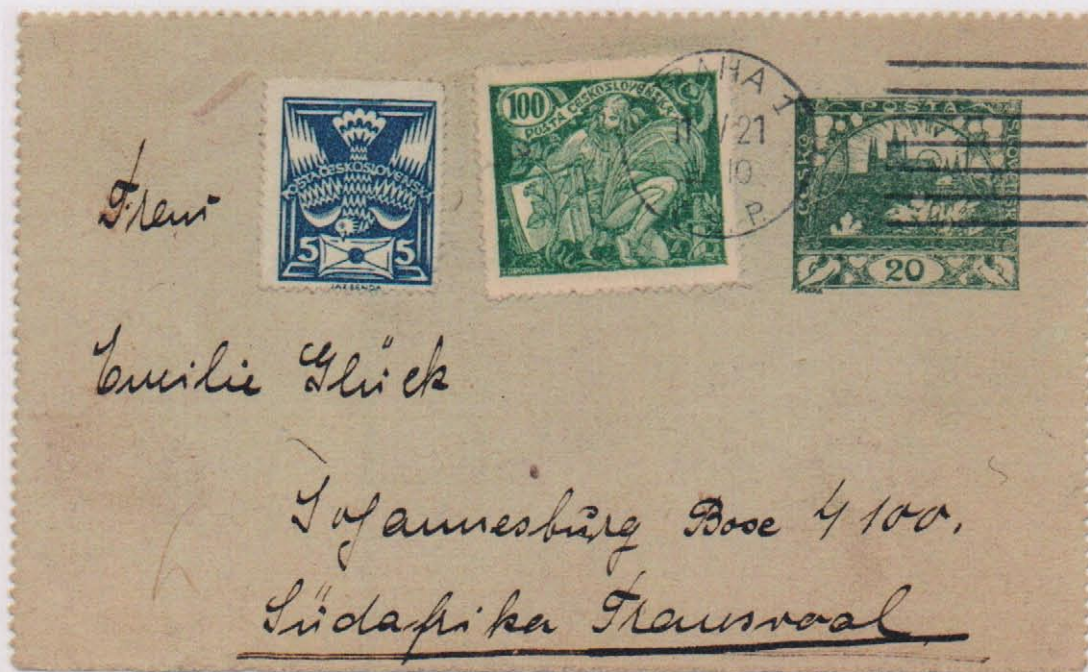 POŠTA ČESKOSLOVENSKÁ
5 5
JAK.BENDA
100
POŠTA ČESKOSLOVENSKÁ
PRAHA 7
11 V 21
10
P.
POŠTA
ČESKO SLOVENSKÁ
20
Frau
Emilie Glück
Johannesburg Boxe 4100.
Südafrika Transvaal